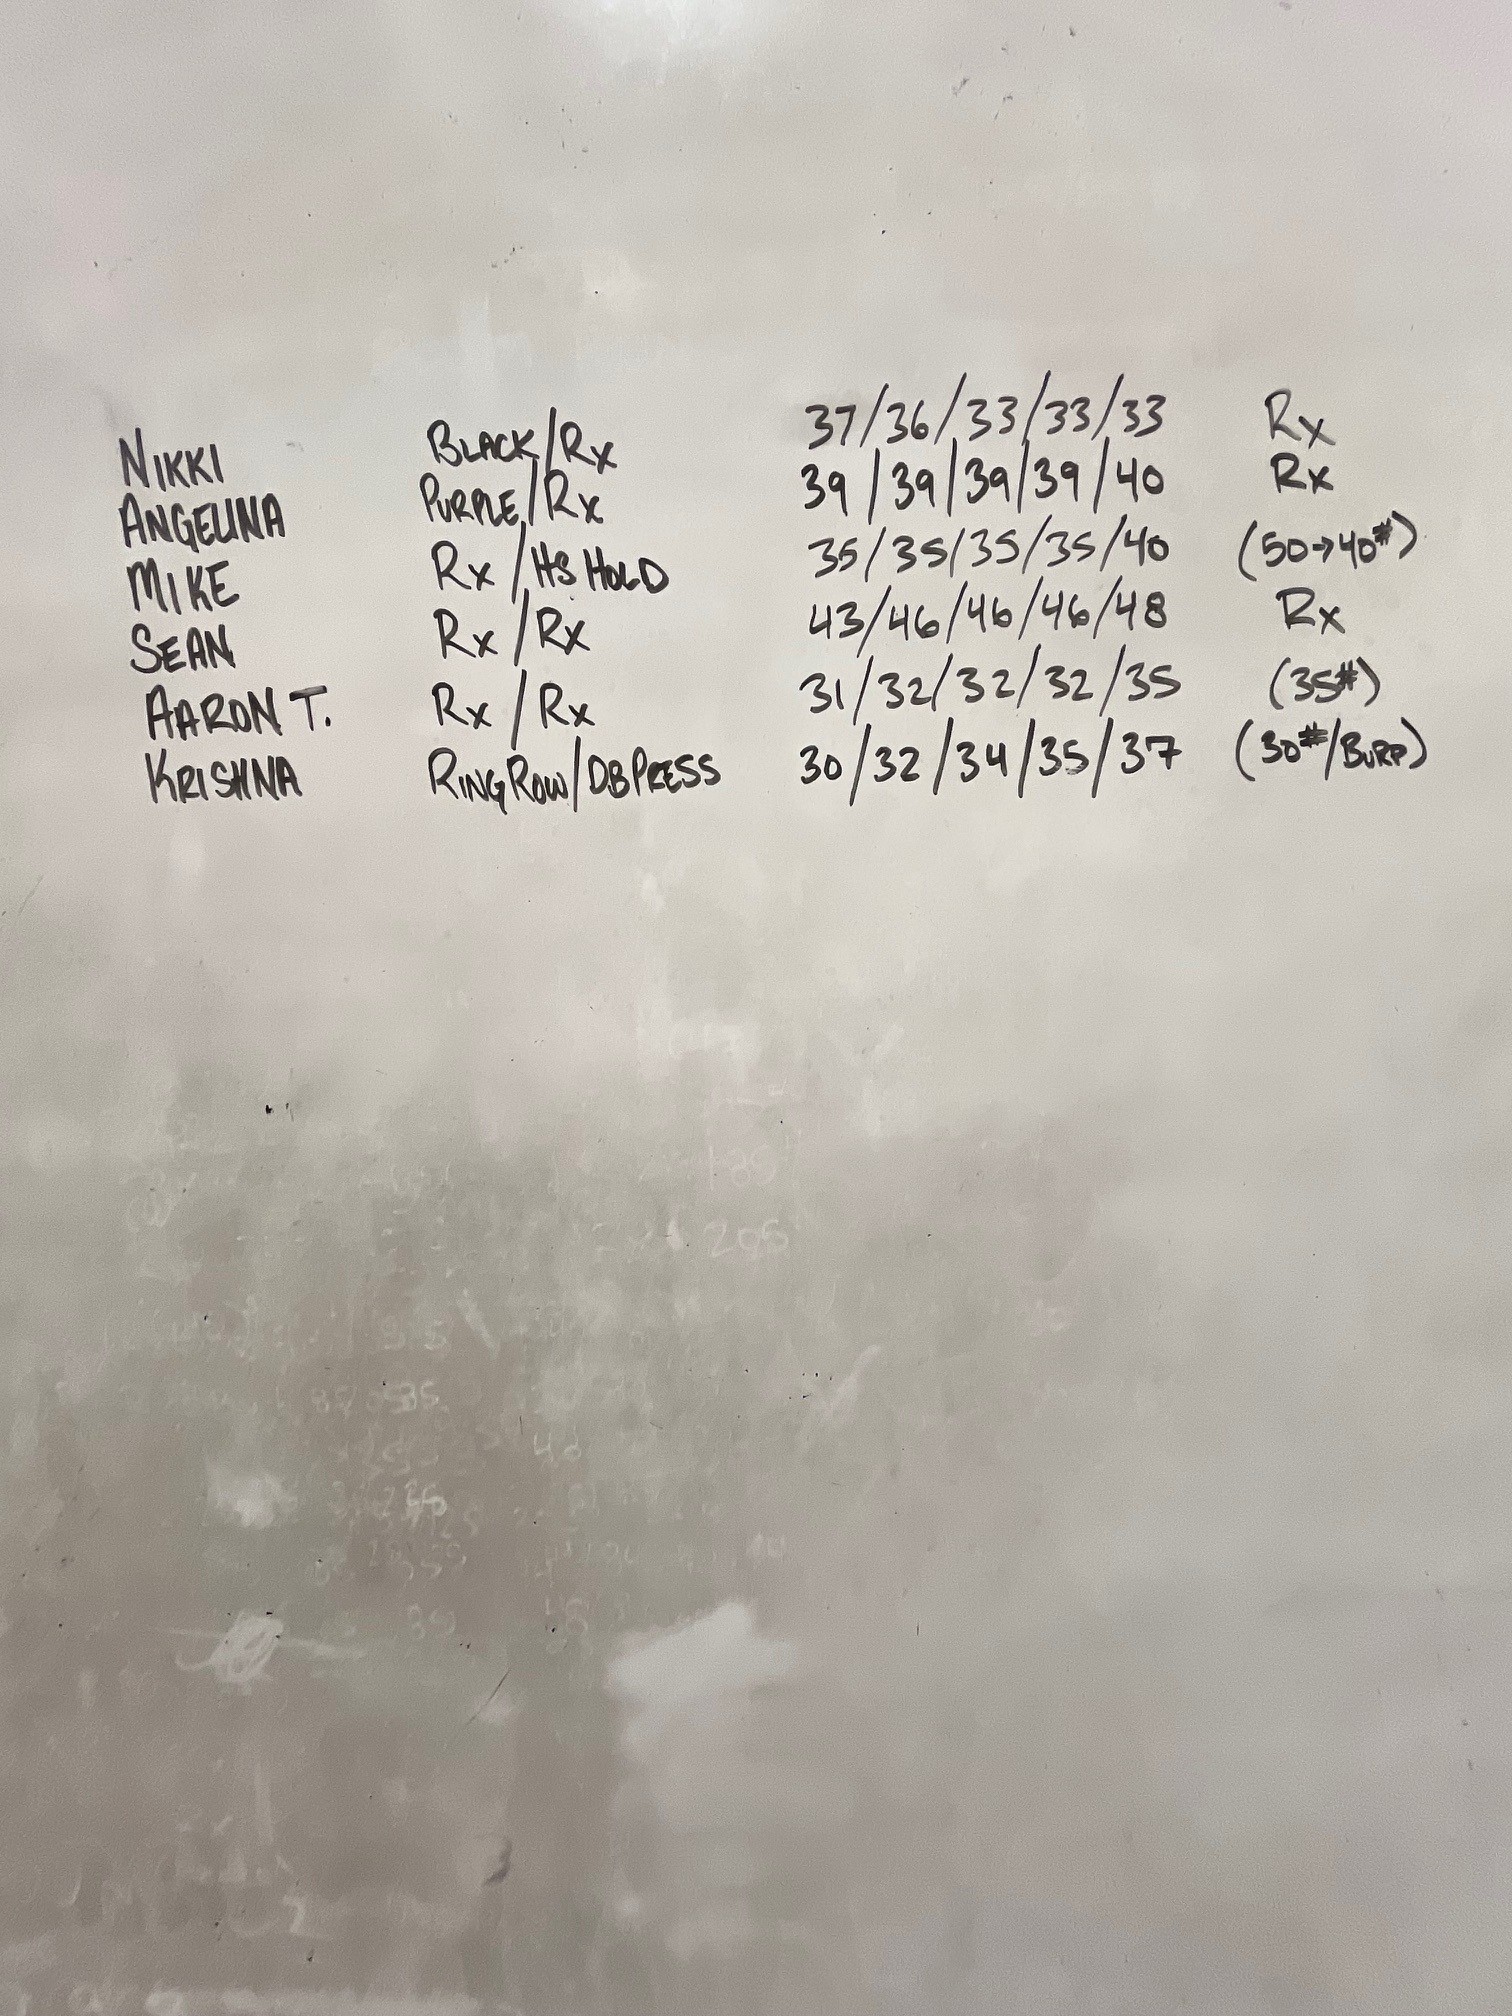 NIKKI BLACK/Rx 37/36/33/33/33 Rx
ANGELINA PURPLE/Rx 39/39/39/39/40 Rx
MIKE Rx/HS HOLD 35/35/35/35/40 (50→40#)
SEAN Rx/Rx 43/46/46/46/48 Rx
AARON T. Rx/Rx 31/32/32/32/35 (35#)
KRISHNA RING ROW/DB PRESS 30/32/34/35/37 (30#/BURP)
205